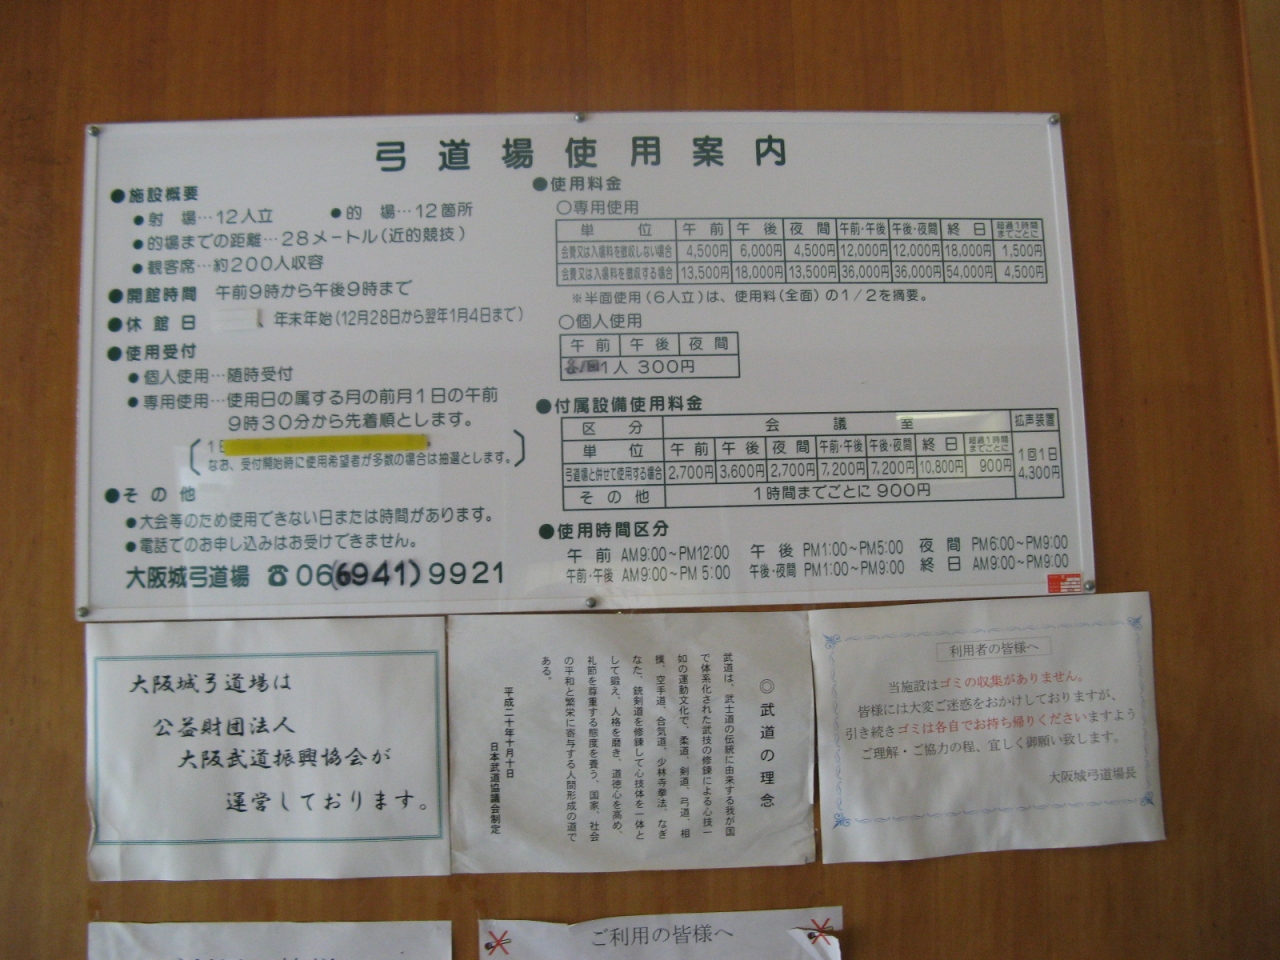 弓道場使用案内
●施設概要
●射場…12人立 ●的場…12箇所
●的場までの距離…28メートル(近的競技)
●観客席…約200人収容
●開館時間 午前9時から午後9時まで
●休館日 、年末年始(12月28日から翌年1月4日まで)
●使用受付
●個人使用…随時受付
●専用使用…使用日の属する月の前月1日の午前
9時30分から先着順とします。
1日
なお、受付開始時に使用希望者が多数の場合は抽選とします。
●その他
●大会等のため使用できない日または時間があります。
●電話でのお申し込みはお受けできません。
大阪城弓道場 ☎06(6941)9921
●使用料金
○専用使用
単位 午前 午後 夜間 午前・午後 午後・夜間 終日 超過1時間までごとに
会費又は入場料を徴収しない場合 4,500円 6,000円 4,500円 12,000円 12,000円 18,000円 1,500円
会費又は入場料を徴収する場合 13,500円 18,000円 13,500円 36,000円 36,000円 54,000円 4,500円
※半面使用(6人立)は、使用料(全面)の1/2を摘要。
○個人使用
午前 午後 夜間
1人 300円
●付属設備使用料金
区分 会議室 拡声装置
単位 午前 午後 夜間 午前・午後 午後・夜間 終日 超過1時間までごとに
弓道場と併せて使用する場合 2,700円 3,600円 2,700円 7,200円 7,200円 10,800円 900円 1回1日 4,300円
その他 1時間までごとに900円
●使用時間区分
午前 AM9:00~PM12:00 午後 PM1:00~PM5:00 夜間 PM6:00~PM9:00
午前・午後 AM9:00~PM5:00 午後・夜間 PM1:00~PM9:00 終日 AM9:00~PM9:00
大阪城弓道場は
公益財団法人
大阪武道振興協会が
運営しております。
◎武道の理念
武道は、武士道の伝統に由来する我が国
で体系化された武技の修錬による心技一
如の運動文化で、柔道、剣道、弓道、相
撲、空手道、合気道、少林寺拳法、なぎ
なた、銃剣道を修錬して心技体を一体と
して鍛え、人格を磨き、道徳心を高め、
礼節を尊重する態度を養う、国家、社会
の平和と繁栄に寄与する人間形成の道で
ある。
平成二十年十月十日
日本武道協議会制定
利用者の皆様へ
当施設はゴミの収集がありません。
皆様には大変ご迷惑をおかけしておりますが、
引き続きゴミは各自でお持ち帰りくださいますよう
ご理解・ご協力の程、宜しく御願い致します。
大阪城弓道場長
ご利用の皆様へ